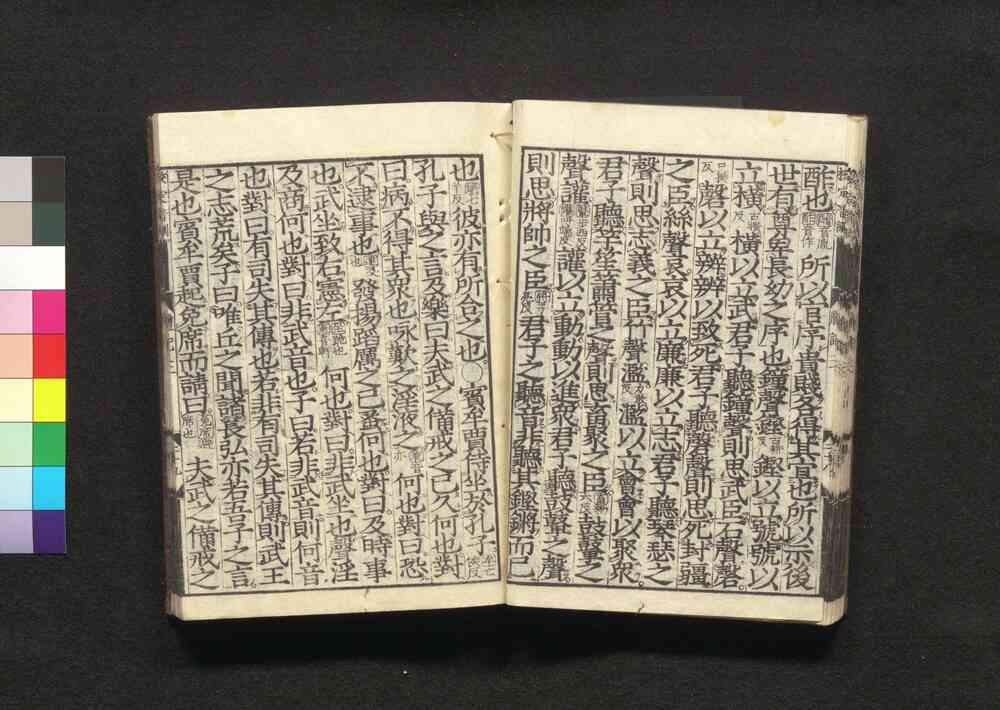 酳也所以官序貴賤各得其宜也所以示後
世有尊卑長幼之序也鐘聲鏗鏗以立號號以
立橫橫以立武君子聽鐘聲則思武臣石聲磬
磬以立辨辨以致死君子聽磬聲則思死封疆
之臣絲聲哀哀以立廉廉以立志君子聽琴瑟之
聲則思志義之臣竹聲濫濫以立會會以聚眾
君子聽竽笙簫管之聲則思畜聚之臣鼓鼙之
聲讙讙以立動動以進眾君子聽鼓鼙之聲
則思將帥之臣君子之聽音非聽其鏗鏘而已
也彼亦有所合之也○賓牟賈侍坐於孔子
孔子與之言及樂曰夫武之備戒之已久何也對
曰病不得其眾也咏歎之淫液之何也對曰恐
不逮事也發揚蹈厲之已蚤何也對曰及時事
也武坐致右憲左何也對曰非武坐也聲淫
及商何也對曰非武音也子曰若非武音則何音
也對曰有司失其傳也若非有司失其傳則武王
之志荒矣子曰唯丘之聞諸萇弘亦若吾子之言
是也賓牟賈起免席而請曰夫武之備戒之